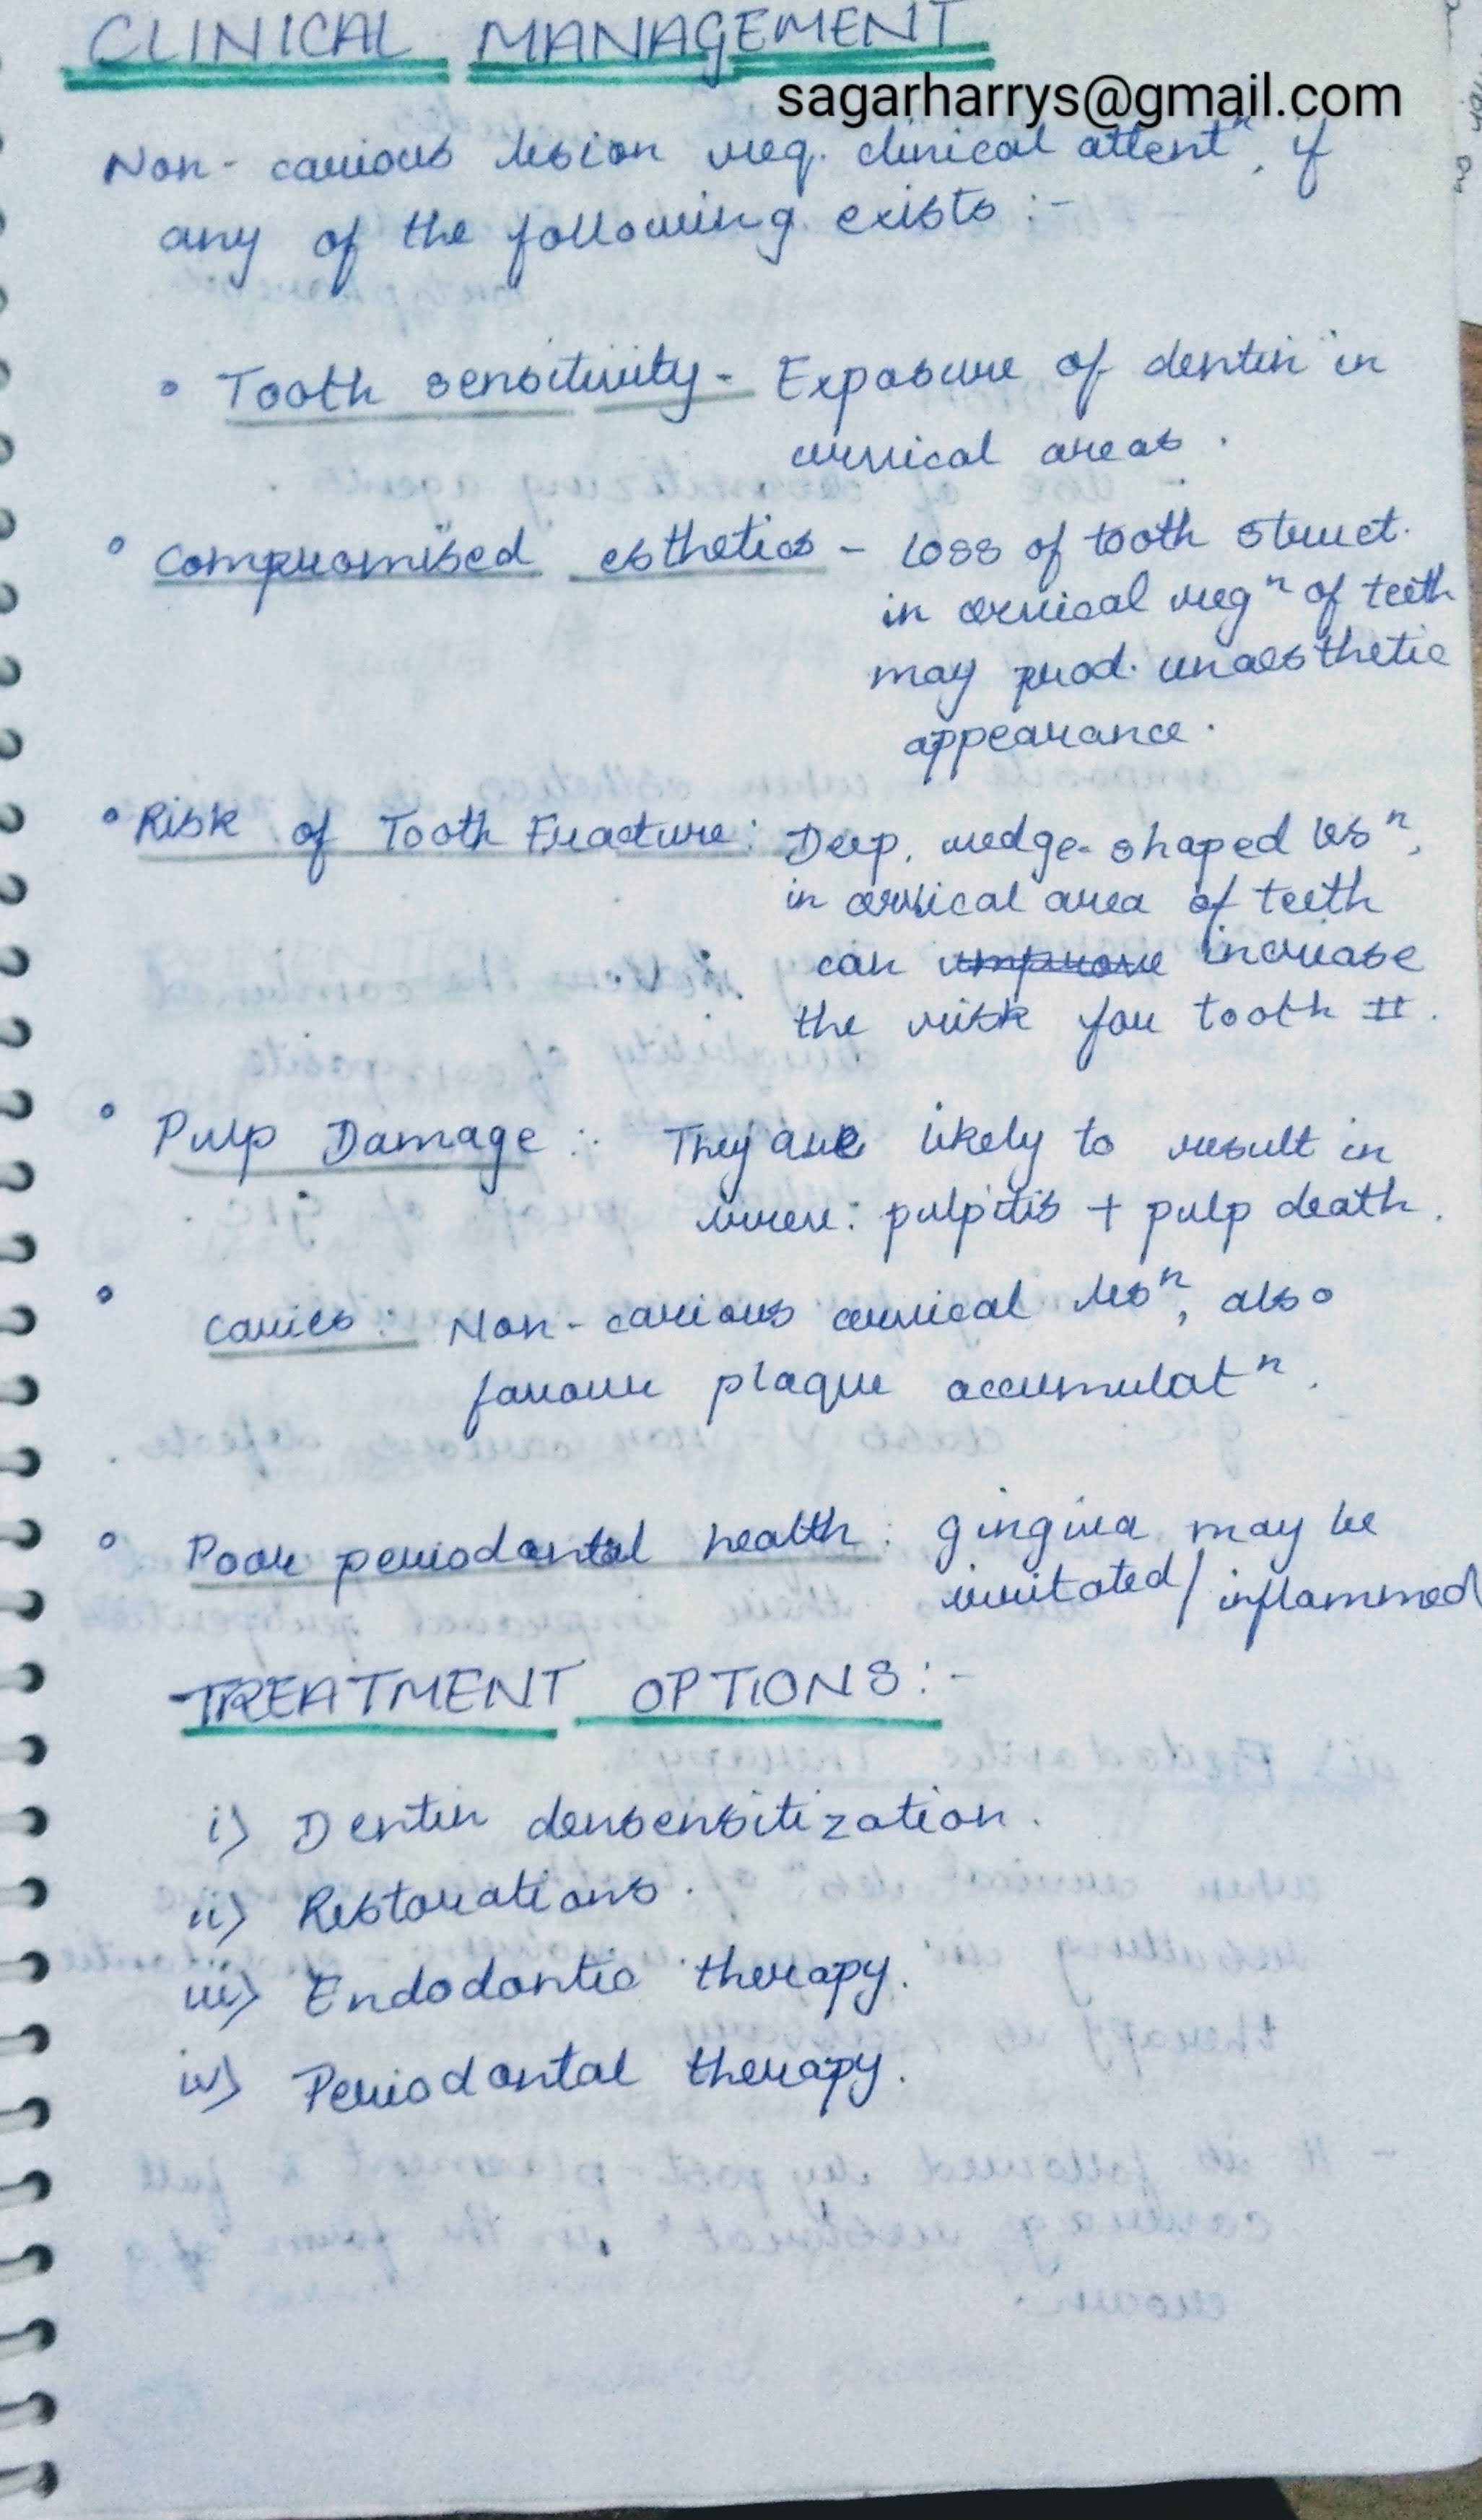 CLINICAL MANAGEMENT
sagarharrys@gmail.com
Non-carious lesion req. clinical attentⁿ, if
any of the following exists :-
• Tooth sensitivity - Exposure of dentin in
cervical areas.
• Compromised esthetics - loss of tooth struct.
in cervical regⁿ of teeth
may prod. unaesthetic
appearance.
• Risk of Tooth Fracture: Deep, wedge-shaped lesⁿ,
in cervical area of teeth
can improve increase
the risk for tooth #.
• Pulp Damage : They are likely to result in
irrev: pulpitis + pulp death.
• Caries: Non-carious cervical lesⁿ, also
favour plaque accumulatⁿ.
• Poor periodontal health: gingiva may be
irritated/inflammed
TREATMENT OPTIONS:-
i) Dentin densensitization.
ii) Restorations.
iii) Endodontic therapy.
iv) Periodontal therapy.